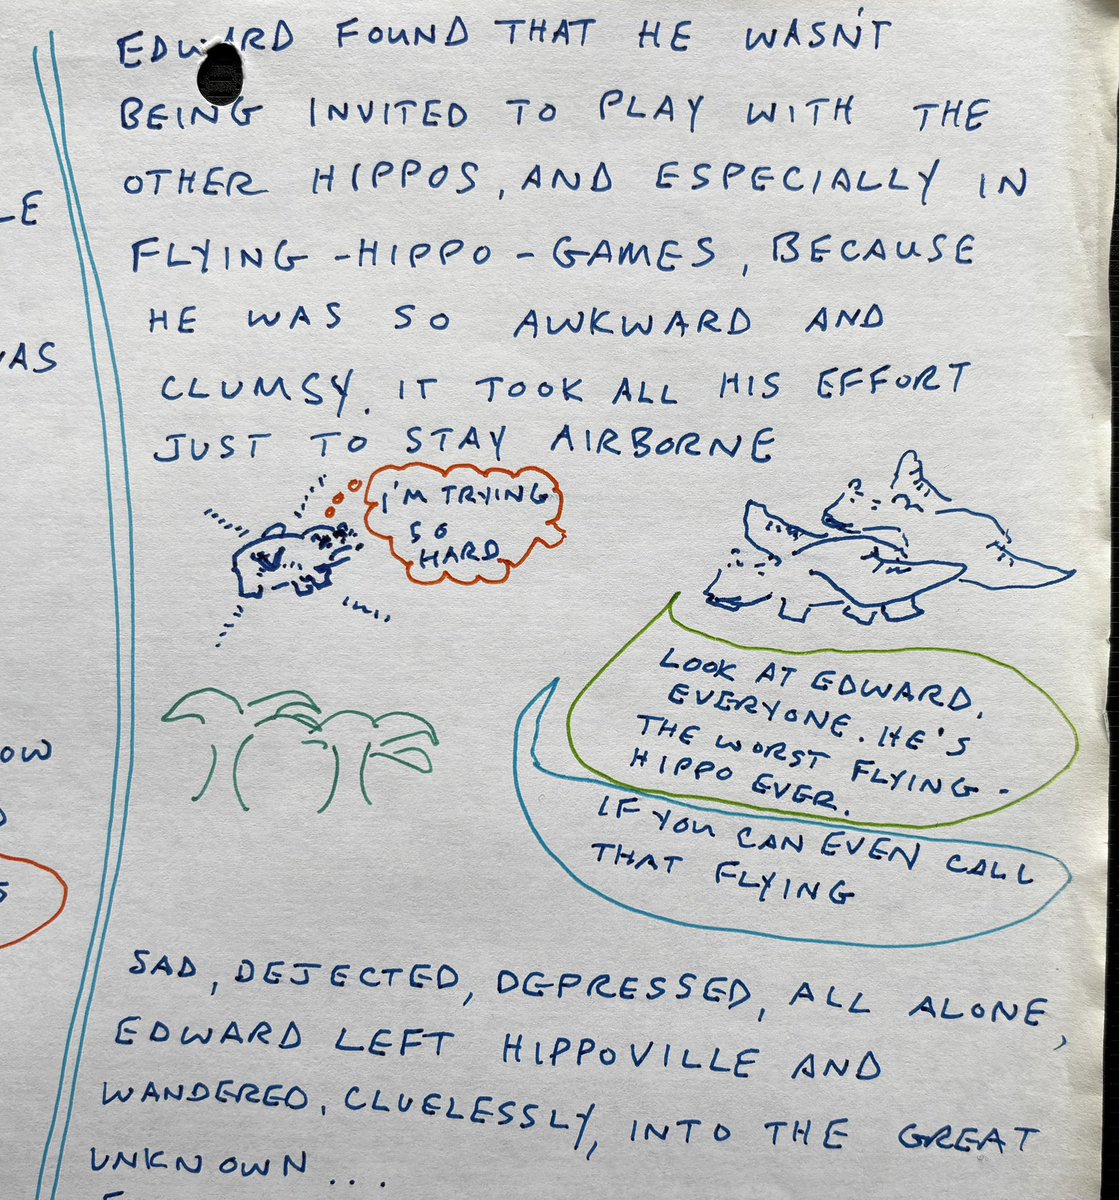 EDWARD FOUND THAT HE WASN'T
BEING INVITED TO PLAY WITH THE
OTHER HIPPOS, AND ESPECIALLY IN
FLYING-HIPPO-GAMES, BECAUSE
HE WAS SO AWKWARD AND
CLUMSY. IT TOOK ALL HIS EFFORT
JUST TO STAY AIRBORNE
I'M TRYING
SO
HARD
LOOK AT EDWARD,
EVERYONE. HE'S
THE WORST FLYING-
HIPPO EVER.
IF YOU CAN EVEN CALL
THAT FLYING
SAD, DEJECTED, DEPRESSED, ALL ALONE,
EDWARD LEFT HIPPOVILLE AND
WANDERED, CLUELESSLY, INTO THE GREAT
UNKNOWN...